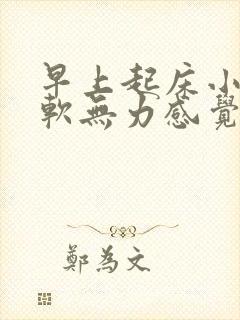 早上起床小
軟無力感覺
鄭為文